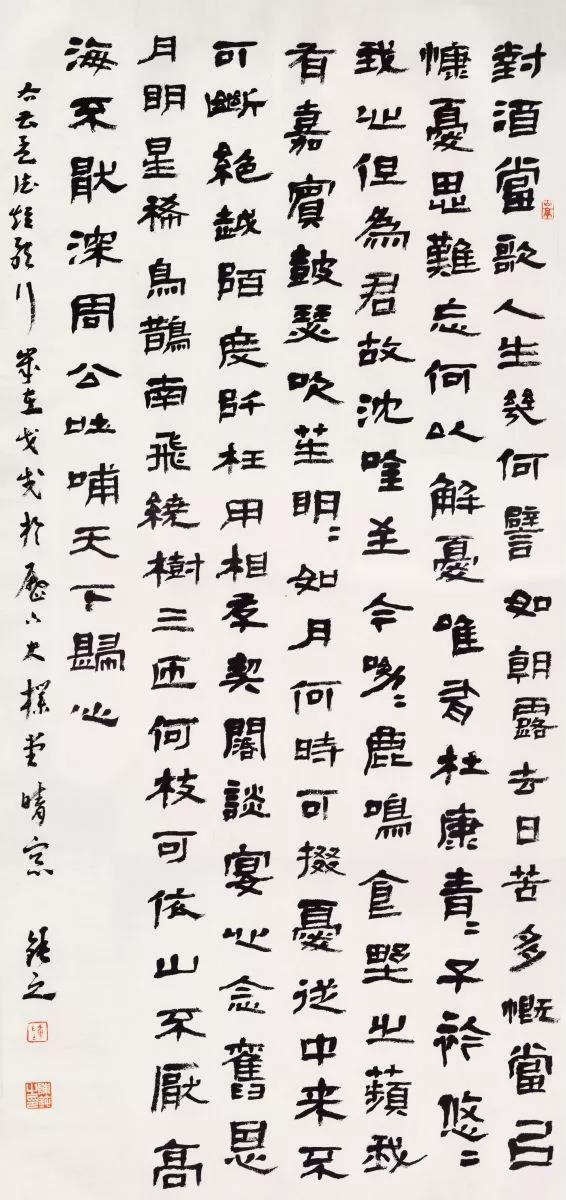 對酒當歌人生幾何譬如朝露去日苦多慨當㠯
慷憂思難忘何以解憂唯有杜康青﹦子衿悠﹦
我心但為君故沈吟至今呦﹦鹿鳴食野之蘋我
有嘉賓鼓瑟吹笙明﹦如月何時可掇憂從中来不
可斷絕越陌度阡枉用相存契闊談宴心念舊恩
月明星稀烏鵲南飛繞樹三匝何枝可依山不厭高
海不厭深周公吐哺天下歸心
孟德短歌行歲在戊戌於歷下大樸堂晴窗